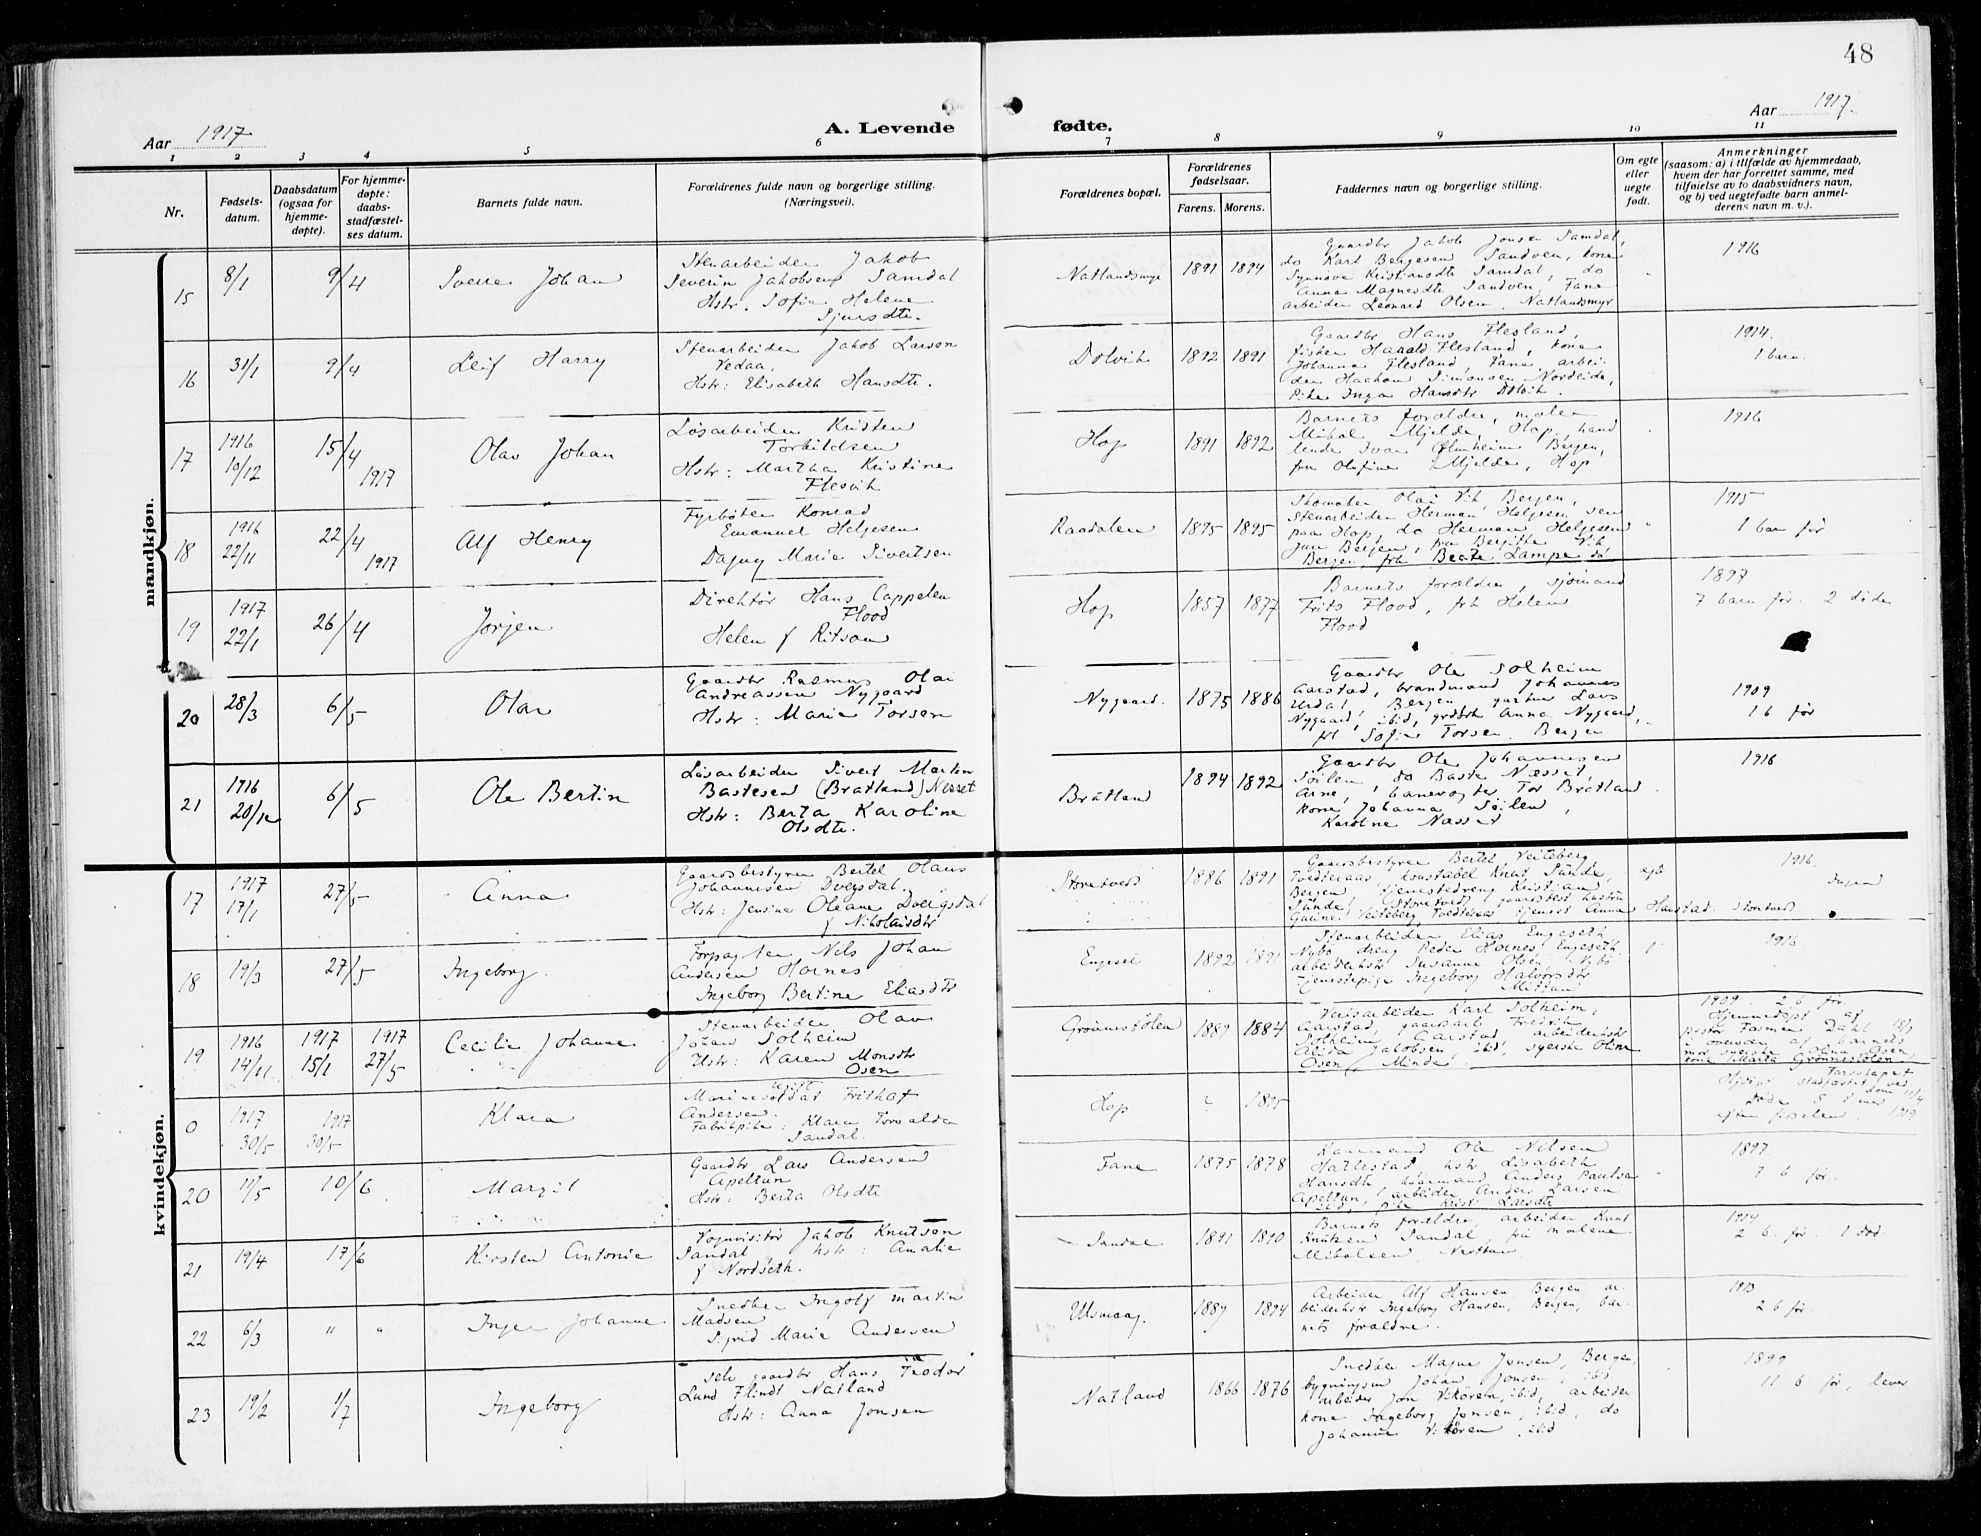 48
Aar 1917
A. Levende fødte.
Aar 1917.
1 2 3 4 5 6 7 8 9 10 11
Nr.
Fødsels-
datum.
Daabsdatum
(ogsaa for
hjemme-
døpte).
For hjemme-
døpte:
daabs-
stadfæstel-
ses datum.
Barnets fulde navn.
Forældrenes fulde navn og borgerlige stilling.
(Næringsvei).
Forældrenes bopæl.
Forældrenes
fødselsaar.
Farens. Morens.
Faddernes navn og borgerlige stilling.
Om egte
eller
uegte
født.
Anmerkninger
(saasom: a) i tilfælde av hjemmedaab,
hvem der har forrettet samme, med
tilføielse av to daabsvidners navn,
og b) ved uegtefødte barn anmel-
derens navn m. v.).
mandkjøn.
15 8/1 9/4 Sverre Johan
Stenarbeider Jakob
Severin Jakobsen Samdal
Hstr. Sofie Helene
Sjursdtr.
Natlandsmyr 1891 1894
Gaardbr Jakob Jonsen Samdal,
do Karl Bergesen Sandven, kone
Synnöve Kristiansdtr Samdal, do
Anna Magnesdtr Sandven, Fane
arbeider Leonard Olsen Natlandsmyr
1916
16 31/1 9/4 Leif Harry
Stenarbeider Jakob Larsen
Vedaa,
Hstr: Elisabeth Hansdtr.
Dolvik 1892 1891
Gaardbr Hans Flesland,
fisker Harald Flesland, kone
Johanna Flesland, Fane, arbei-
der Haakon Simonsen Nordeide,
Pike Inga Hansdtr Dolvik.
1914.
1 barn.
17 1916 10/12 15/4 1917 Olav Johan
Løsarbeider Kristen
Torkildsen
Hstr: Martha Kristine
Flesvik
Hop 1891 1892
Barnets forældre, maler
Mikal Mjelde, Hop, hand
lende Ivar Ølmheim Bergen,
fru Olufine Mjelde, Hop
1916
18 1916 22/11 22/4 1917 Alf Henry
Fyrbøter Konrad
Emanuel Helgesen
Dagny Marie Sivertsen
Raadalen 1895 1895
Skomaker Olai Vik Bergen,
Stenarbeider Herman Helgesen sen
paa Hop, do Herman Helgesen
jun Bergen, fru Bergitte Vik
Bergen, frk Beate Lampe do
1915
1 barn før
19 1917 22/1 26/4 Jørjen
Direktør Hans Cappelen
Flood
Helen f Ritson
Hop 1857 1877
Barnets forældre, sjømand
Frits Flood, frk Helen
Flood
1897
7 barn før. 2 døde
20 28/3 6/5 Olav
Gaardbr Rasmus Olai
Andreassen Nygaard
Hstr: Marie Torsen
Nygaard. 1875 1886
Gaardbr Ole Solheim
Aarstad, brandmand Johannes
Urdal, Bergen gartner Lars
Nygaard, ibid, grdbrk Anna Nygaard,
frk Sofie Torsen Bergen
1909
1 b før
21 1916 20/12 6/5 Ole Bertin
Løsarbeider Sivert Martin
Bastesen (Bratland) Nesset
Hstr: Berta Karoline
Olsdtr.
Bratland 1894 1892
Gaardbr Ole Johannesen
Søilen, do Baste Næsset,
Arne, banevogter Tor Bratland
kone Johanna Søilen,
Karoline Næsset
1916
kvindekjøn.
17 1917 17/1 27/5 Anna
Gaardsbestyrer Bertel Olaus
Johannesen Dvergsdal.
Hstr: Jensine Oleane Dvergsdal
f Nikolaisdtr
Storetvedt 1886 1891
Gaardsbestyrer Bertel Veiteberg,
Tvedteraas, konstabel Knut Sunde,
Bergen tjenestedreng Kristian
Sunde, Storetvedt, gaardsbest hustru
Guline Veiteberg Tvedteraas tjenest Anna Haustad Storetvedt
egte
1916
18 19/3 27/5 Ingeborg.
Forpagter Nils Johan
Andersen Hornes
Ingeborg Bertine Eliasdtr
Engeset 1892 1891
Stenarbeider Elias Engeseth
Nybø dreng Peder Hornes Engeseth
arbeiderhstr Susanne Olsen Nybø
tjenestepige Ingeborg Halvorsdtr
1916
19 1916 14/11 1917 15/1 1917 27/5 Cecilie Johanne
Stenarbeider Olav
Johan Solheim
Hstr: Karen Monsdtr
Osen
Grönnestølen 1889 1884
Veiarbeider Karl Solheim,
Aarstad, gaardsarb Fredrik
Solheim Aarstad, arbeiderhstr
Alida Jakobsen, ibid, syerske Oline
Osen, Minde
1909. 2 b før.
Hjemmedøpt af
pastor Fasmer Dahl 15/1
i overvær af barnets
mor, syerske Olina Osen,
kone Marta Grønnestølen
0 1917 30/5 1917 30/5 Klara
Marinesoldat Frithof
Andersen.
Fabrikpike: Klara Torvalda
Sandal.
Hop 1895
20 11/5 10/6 Margit
Gaardbr Lars Andersen
Apeltun
Hstr: Berta Olsdtr
Fane 1875 1878
Kaarmand Ole Nilsen
Hattestad, hstr Lisabeth
Hansdtr, kaarmand Anders Paulsen
Apeltun, arbeider Anders Larsen
ibid, pike Kristi Larsdtr
1897
7 b før.
21 19/4 17/6 Kirsten Antonie
Vognvisitør Jakob Knutsen
Sandal hstr: Amalie
f Nordseth.
Sandal 1891 1890
Barnets forældre, arbeider Knut
Knutsen Sandal, fru Malene
Mikalsen Nesttun
1914
2 b. før. 1 død.
22 6/3 " " Inger Johanne
Snedker Ingolf Martin
Madsen
Sigrid Marie Andersen
Ulsmaag. 1889 1894
Arbeider Alf Hansen, Bergen, ar-
beiderhstr Ingeborg Hansen, Bergen, bar-
nets forældre.
1913
2 b før
23 19/2 1/7 Ingeborg
selv gaardbr Hans Teodor
Lund Flindt Natland
Hstr: Anna Jonsen
Natland 1866 1876
Snedker Magne Jonsen, Bergen,
bygningsm Johan Jonsen, ibid
arbeider Jon Vikören, ibid, arbeider
kone Ingeborg Jonsen, ibid, do
Johanne Vikören ibid
1899
11 b før, lever